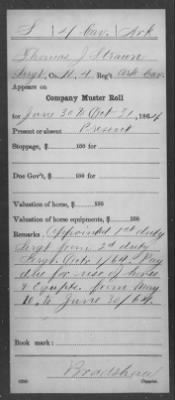 S 4 Cav. Ark
Thomas J. Strawn
Sergt, Co. H, 4 Reg't Ark Cav.
Appears on
Company Muster Roll
for June 30 to Oct 31, 1864
Present or absent Present
Stoppage, $ 100 for
Due Gov't, $ 100 for
Valuation of horse, $ 100
Valuation of horse equipments, $ 100
Remarks: Appointed 1st duty
Sergt from 2d duty
Sergt. Oct 1/64. Pay
due for use of horse
& Equipts. from May
10, to June 30/64.
Book mark:
Bradshaw
Copyist.